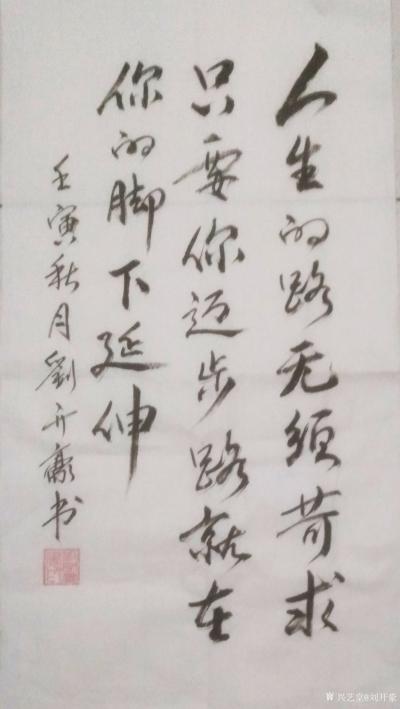 人生的路无须苛求
只要你迈步路就在
你的脚下延伸
壬寅秋月劉开豪书
兴艺堂@刘开豪